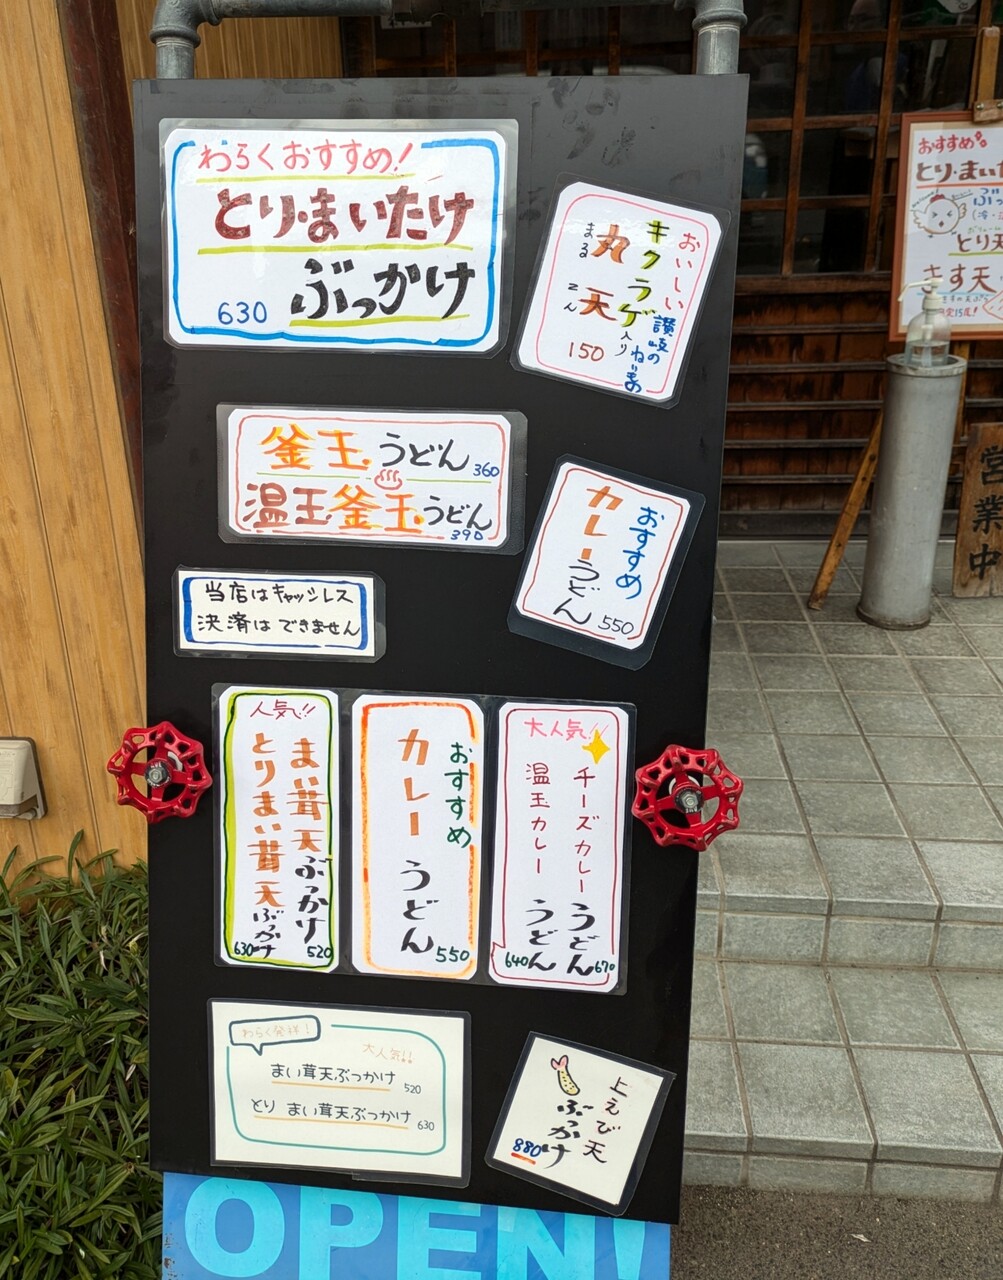 わらくおすすめ!
とり・まいたけ
ぶっかけ
630
おいしい
キクラゲ入り
讃岐の
ねりもの
丸天
まる
てん
150
釜玉うどん 360
温玉釜玉うどん 390
おすすめ
カレーうどん
550
当店はキャッシレス
決済はできません
人気!!
まい茸天ぶっかけ 520
とりまい茸天ぶっかけ 630
おすすめ
カレーうどん
550
大人気!!
チーズカレーうどん 670
温玉カレーうどん 640
わらく発祥!
大人気!!
まい茸天ぶっかけ 520
とり まい茸天ぶっかけ 630
上えび天
ぶっかけ
880
OPEN!
おすすめ
とり・まい
とり天
きす天
営業中